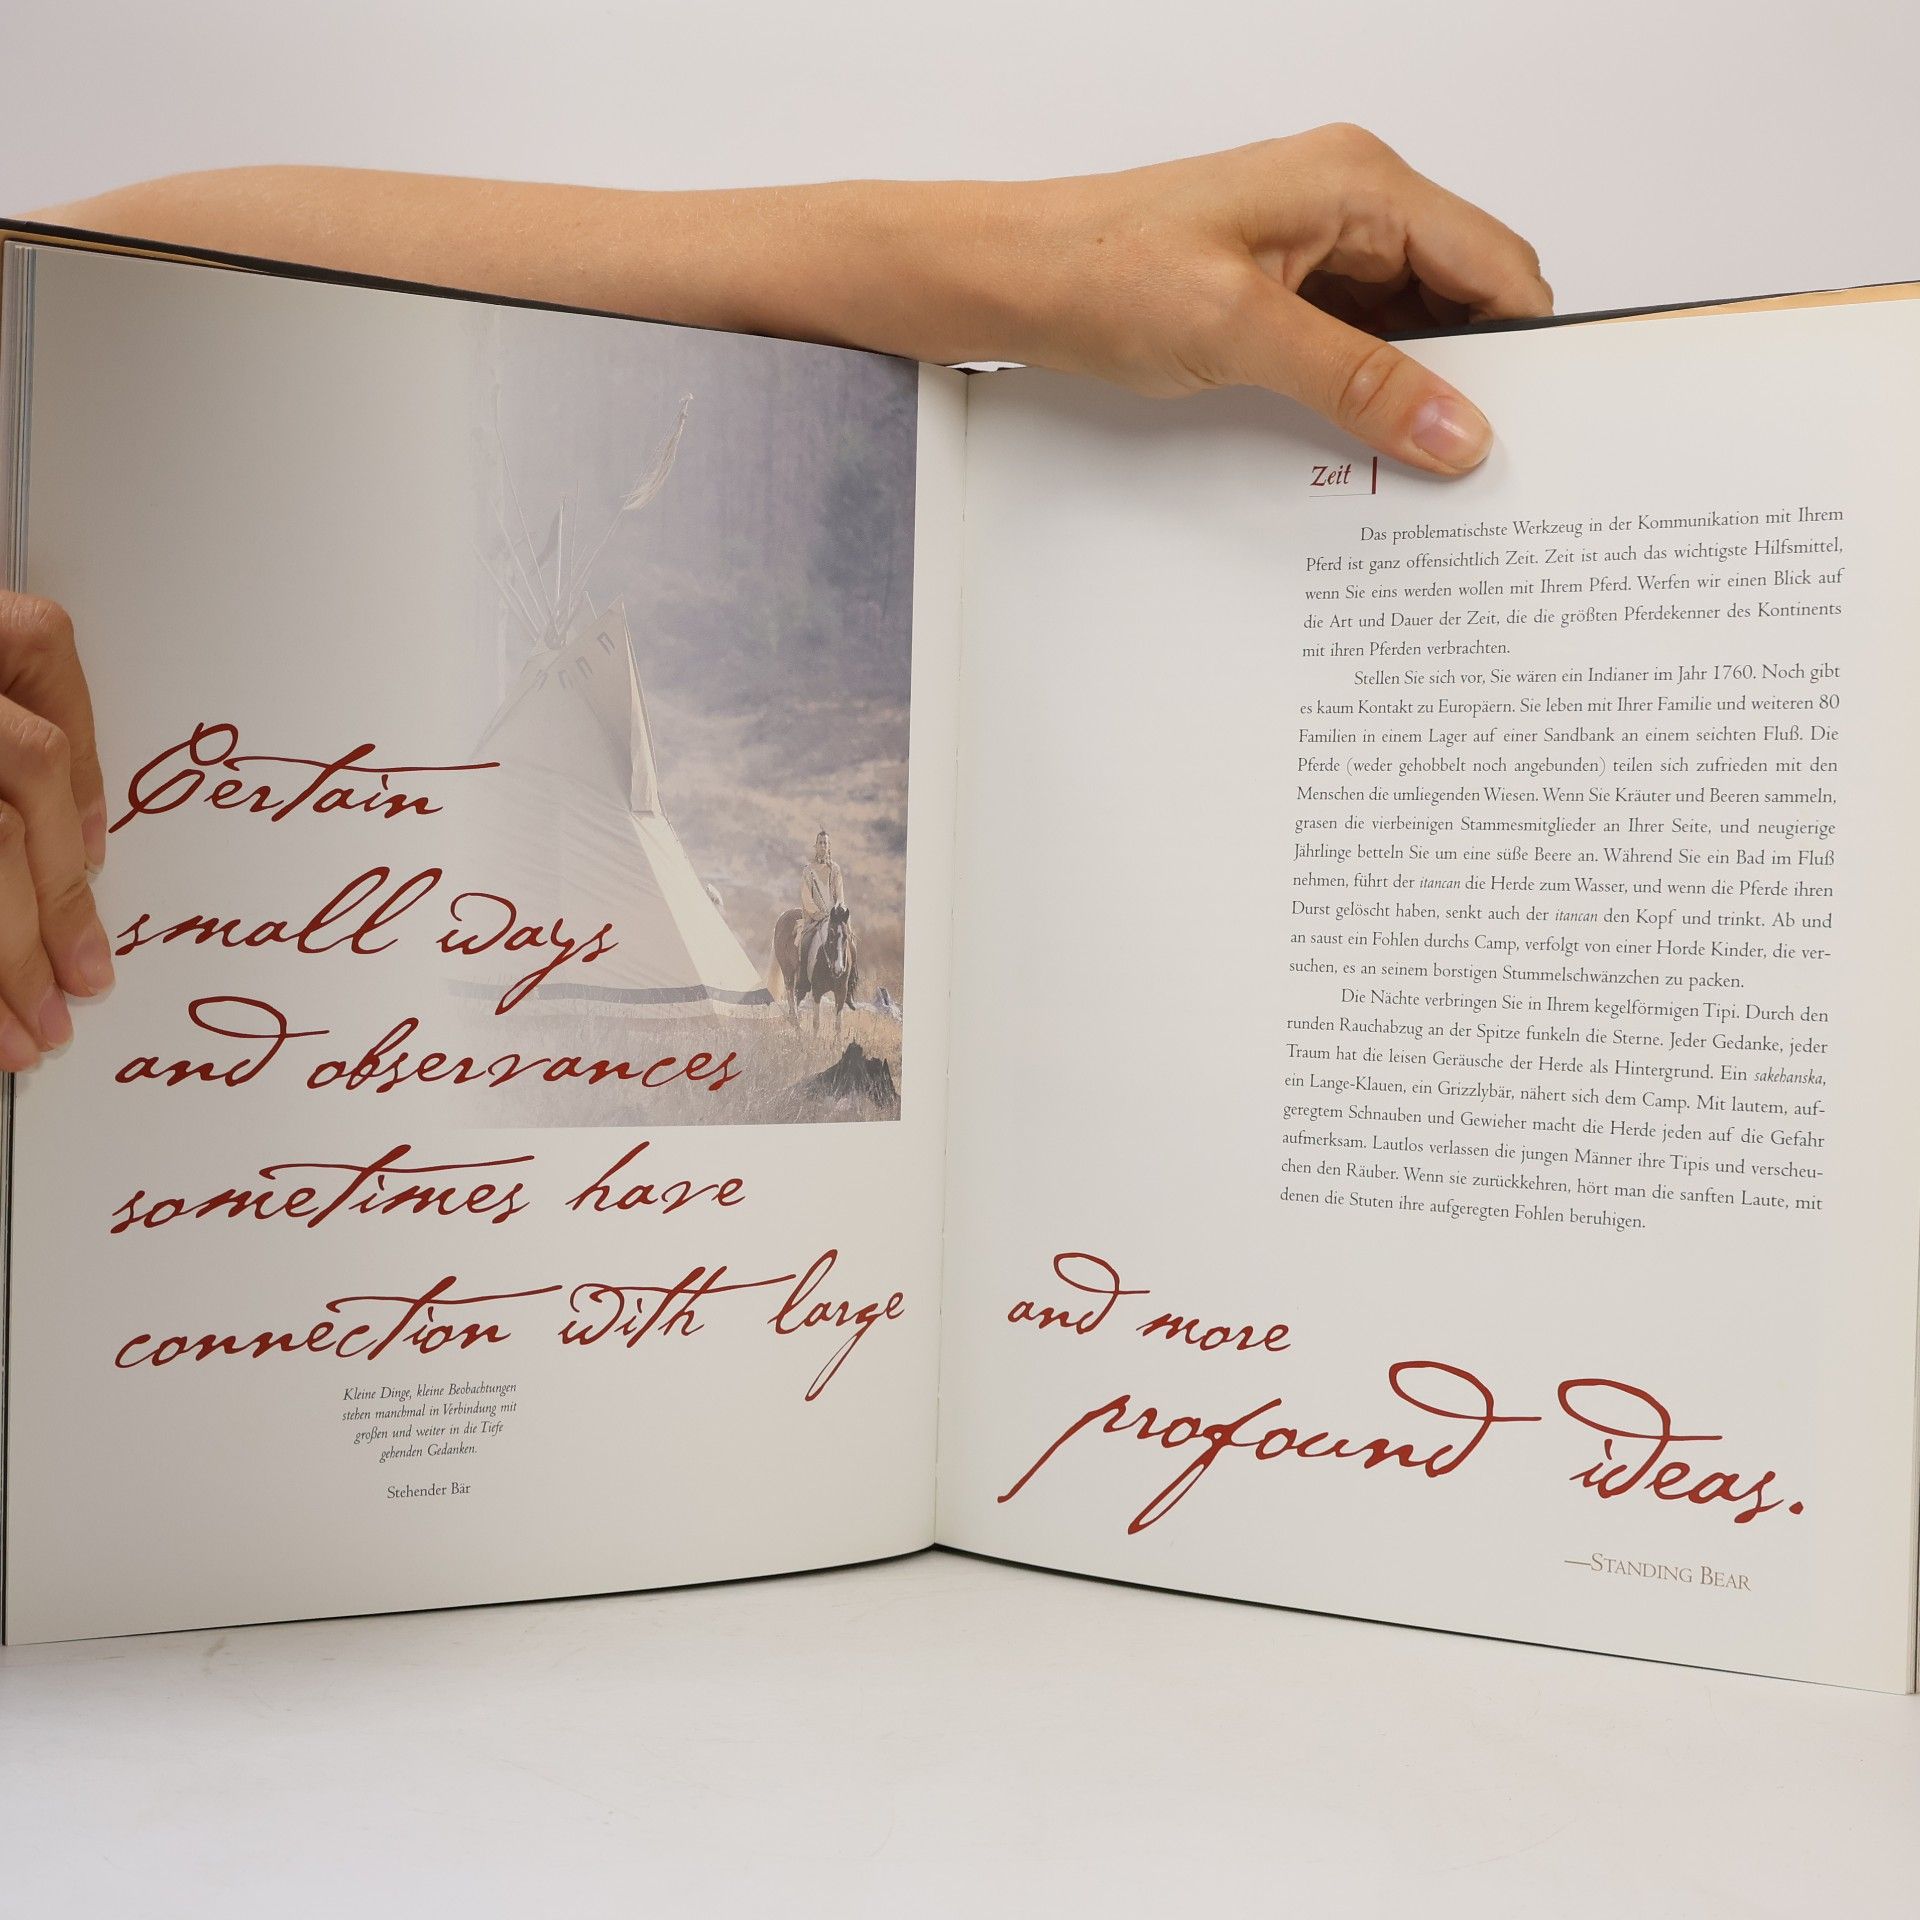 Certain
small ways
and observances
sometimes have
connection with large
Kleine Dinge, kleine Beobachtungen
stehen manchmal in Verbindung mit
großen und weiter in die Tiefe
gehenden Gedanken.
Stehender Bär
Zeit
Das problematischste Werkzeug in der Kommunikation mit Ihrem
Pferd ist ganz offensichtlich Zeit. Zeit ist auch das wichtigste Hilfsmittel,
wenn Sie eins werden wollen mit Ihrem Pferd. Werfen wir einen Blick auf
die Art und Dauer der Zeit, die die größten Pferdekenner des Kontinents
mit ihren Pferden verbrachten.
Stellen Sie sich vor, Sie wären ein Indianer im Jahr 1760. Noch gibt
es kaum Kontakt zu Europäern. Sie leben mit Ihrer Familie und weiteren 80
Familien in einem Lager auf einer Sandbank an einem seichten Fluß. Die
Pferde (weder gehobbelt noch angebunden) teilen sich zufrieden mit den
Menschen die umliegenden Wiesen. Wenn Sie Kräuter und Beeren sammeln,
grasen die vierbeinigen Stammesmitglieder an Ihrer Seite, und neugierige
Jährlinge betteln Sie um eine süße Beere an. Während Sie ein Bad im Fluß
nehmen, führt der itancan die Herde zum Wasser, und wenn die Pferde ihren
Durst gelöscht haben, senkt auch der itancan den Kopf und trinkt. Ab und
an saust ein Fohlen durchs Camp, verfolgt von einer Horde Kinder, die ver-
suchen, es an seinem borstigen Stummelschwänzchen zu packen.
Die Nächte verbringen Sie in Ihrem kegelförmigen Tipi. Durch den
runden Rauchabzug an der Spitze funkeln die Sterne. Jeder Gedanke, jeder
Traum hat die leisen Geräusche der Herde als Hintergrund. Ein sakehanska,
ein Lange-Klauen, ein Grizzlybär, nähert sich dem Camp. Mit lautem, auf-
geregtem Schnauben und Gewieher macht die Herde jeden auf die Gefahr
aufmerksam. Lautlos verlassen die jungen Männer ihre Tipis und verscheu-
chen den Räuber. Wenn sie zurückkehren, hört man die sanften Laute, mit
denen die Stuten ihre aufgeregten Fohlen beruhigen.
and more
profound ideas.
—STANDING BEAR